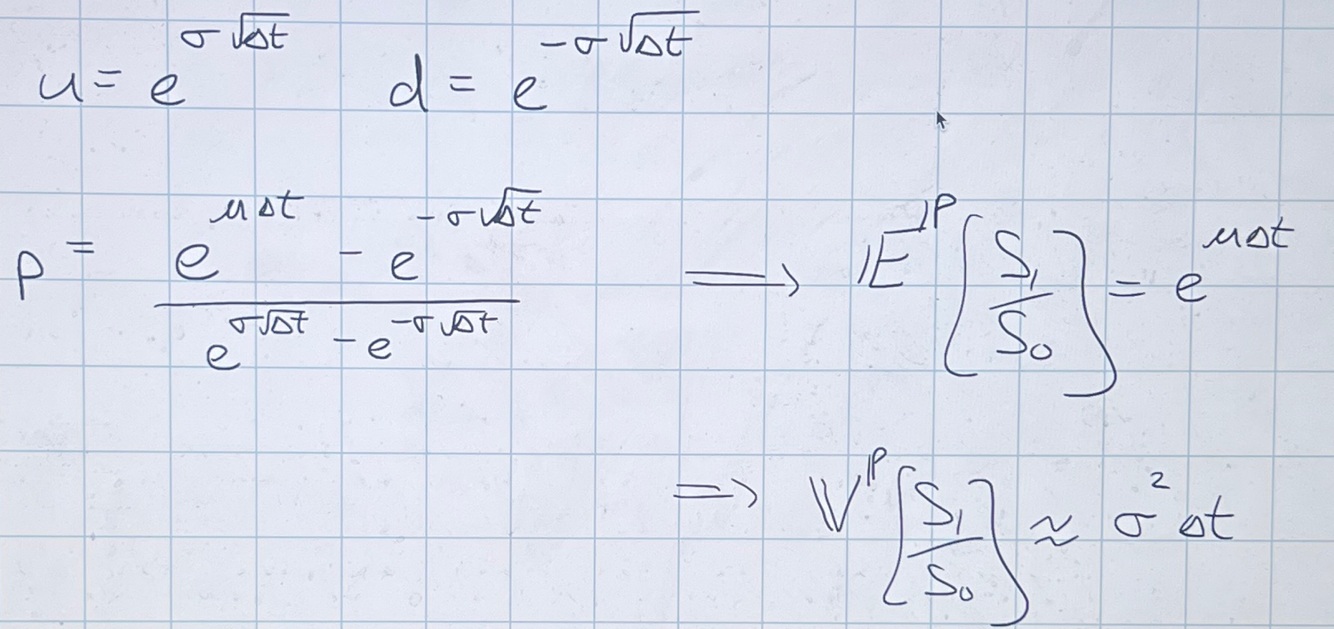 u = e^{σ√Δt} d = e^{-σ√Δt}
p = \frac{e^{μΔt} - e^{-σ√Δt}}{e^{σ√Δt} - e^{-σ√Δt}} ⟹ 𝔼^ℙ[\frac{S_1}{S_0}] = e^{μΔt}
⟹ 𝕍^ℙ[\frac{S_1}{S_0}] ≈ σ^2 Δt